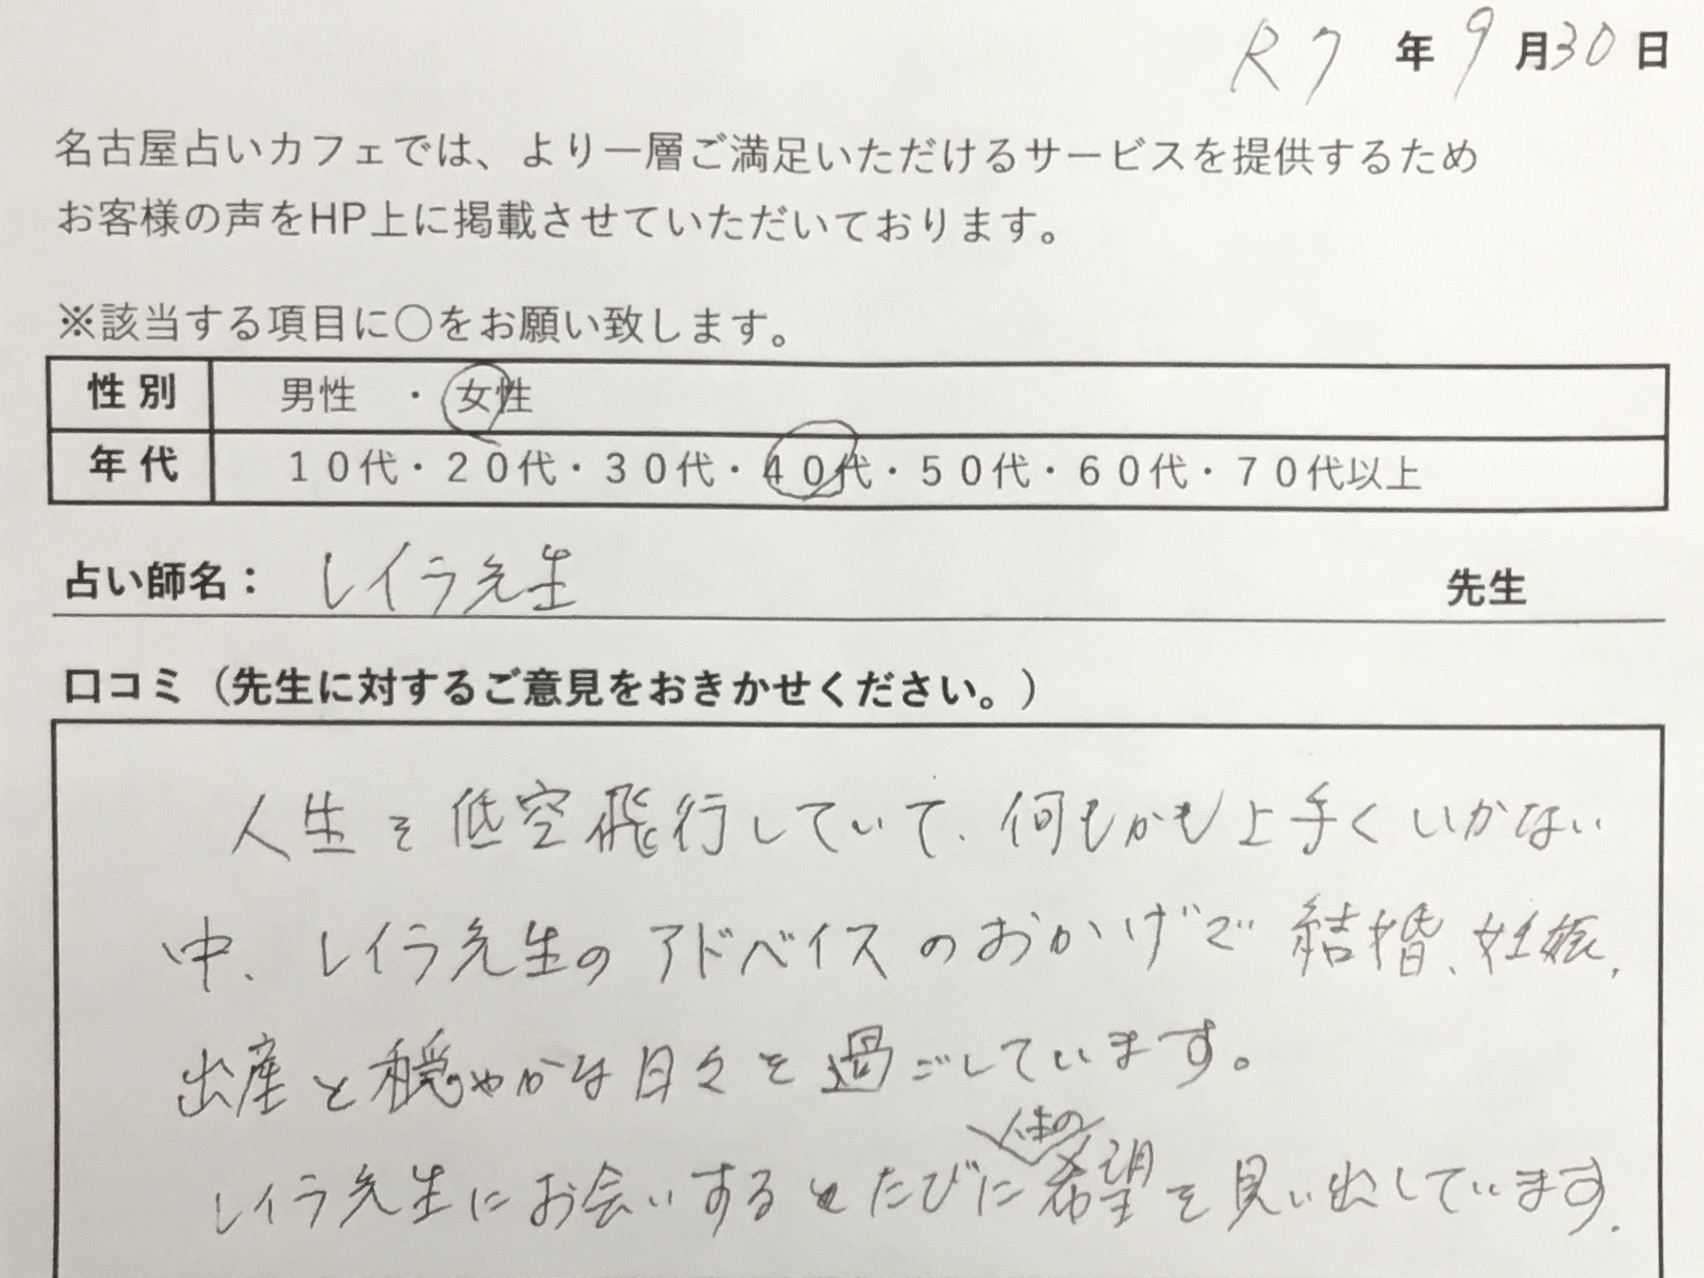 R7年9月30日
名古屋占いカフェでは、より一層ご満足いただけるサービスを提供するため
お客様の声をHP上に掲載させていただいております。
※該当する項目に〇をお願い致します。
性別 男性 ・ 女性
年代 10代・20代・30代・40代・50代・60代・70代以上
占い師名： レイラ先生 先生
口コミ（先生に対するご意見をおきかせください。）
人生を低空飛行していて、何もかも上手くいかない
中、レイラ先生のアドバイスのおかげで結婚、妊娠、
出産と穏やかな日々を過ごしています。
レイラ先生にお会いするとたびに人生の希望を見い出しています。